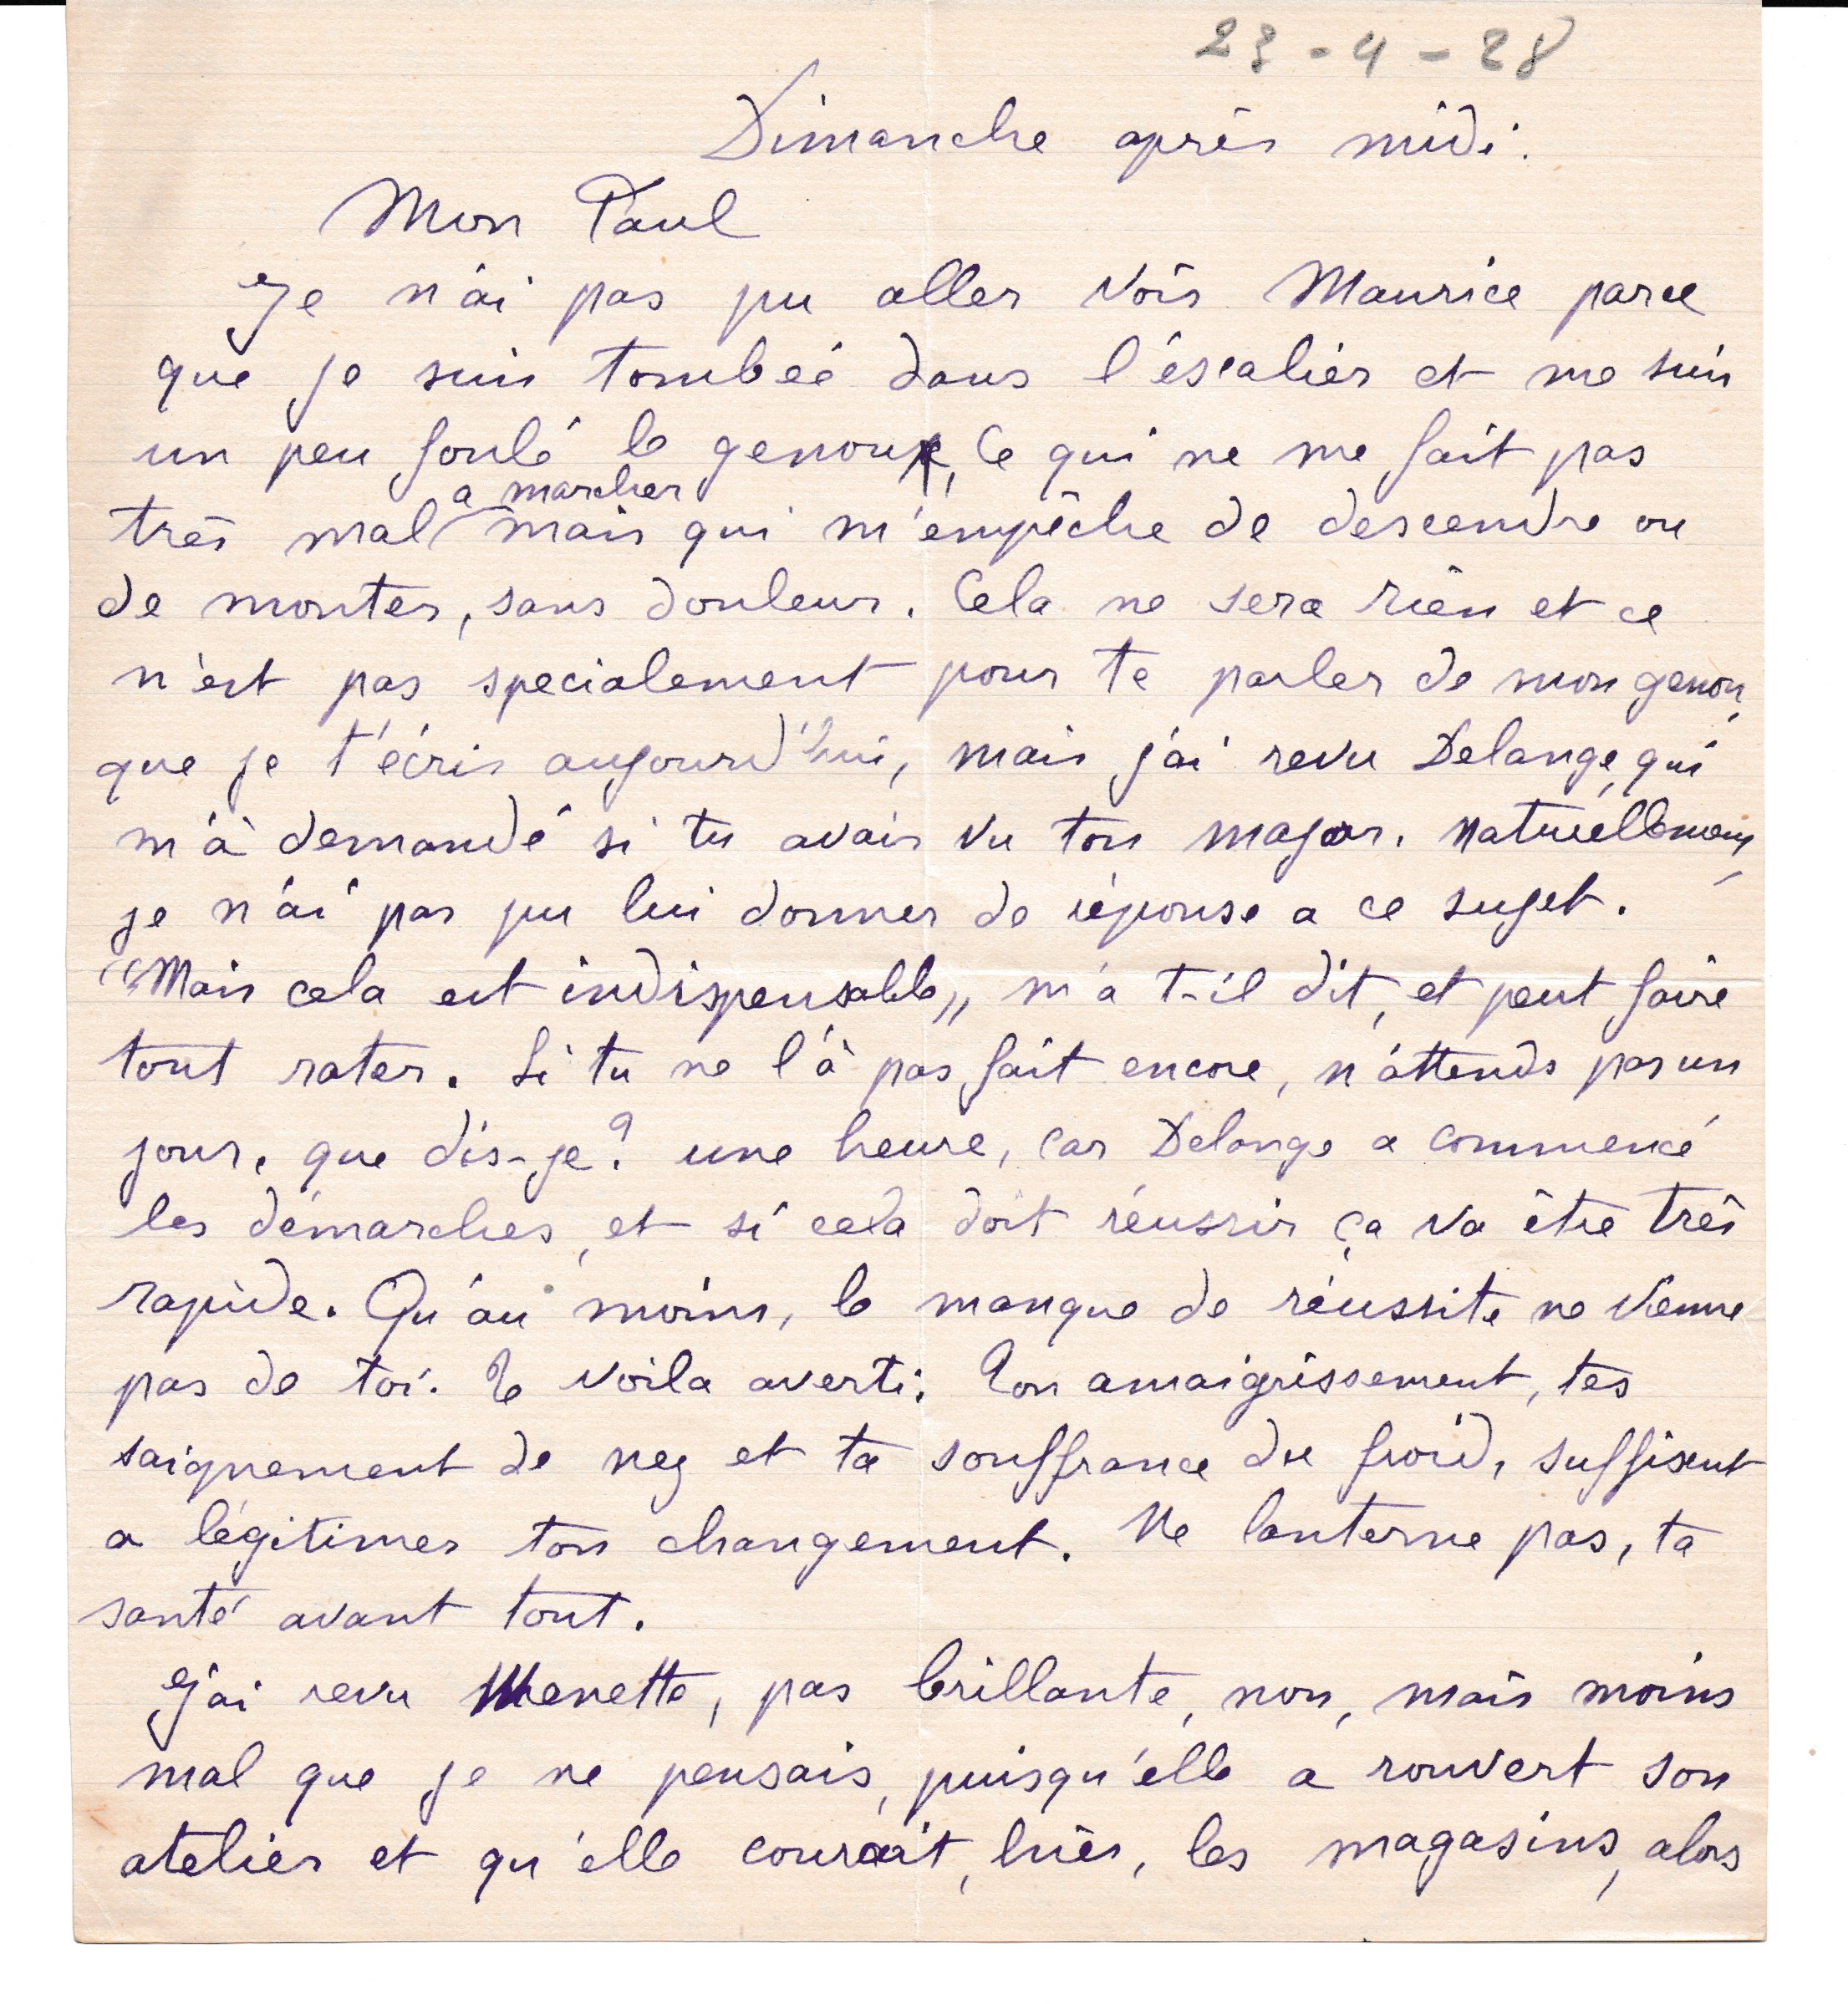 23-4-28
Dimanche après midi.
Mon Paul
Je n'ai pas pu aller voir Maurice parce
que je suis tombée dans l'éscalier et me suis
un peu foulé le genou, ce qui ne me fait pas
a marcher
très mal mais qui m'empêche de descendre ou
de monter, sans douleur. Cela ne sera rien et ce
n'est pas specialement pour te parler de mon genou,
que je t'écris aujourd'hui, mais j'ai revu Delange, qui
m'à demandé si tu avais vu ton major. Naturéllement,
je n'ai pas pu lui donner de réponse a ce sujet.
"Mais cela est indispensable,, m'a t-il dit, et peut faire
tout rater. Si tu ne l'à pas fait encore, n'attends pas un
jour, que dis-je? une heure, car Delange a commencé
les démarches, et si cela doit réussir ça va être très
rapide. Qu'au moins, le manque de réussite ne vienne
pas de toi. Te voila averti. Ton amaigrissement, tes
saignement de nez et ta souffrance du froid, suffisent
a légitimer ton changement. Ne lanterne pas, ta
santé avant tout.
J'ai revu Menette, pas brillante, non, mais moins
mal que je ne pensais, puisqu'elle a rouvert son
atelier et qu'elle courait, hier, les magasins, alors